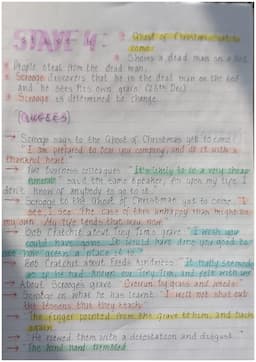 STAVE 4:
* Ghost of Christmas yet to come
* Shows a dead man on a bed
* People steal from the dead man.
* Scrooge discovers that he is the dead man on the bed
and he sees his own grave. (25th Dec)
* Scrooge is determined to change.
(QUOTES)
→ Scrooge says to the Ghost of Christmas yet to come "
I am prepared to bear you company, and do it with a
thankful heart."
→ Two business colleagues "It's likely to be a very cheap
funeral" said the same speaker, "for upon my life I
don't know of anybody to go to it."
→ Scrooge to the Ghost of Christmas yet to come "I
see, I see. The case of this unhappy man might be
my own. My life tends that way now."
→ Bob Cratchit about Tiny Tim's grave "I wish you
could have gone. It would have done you good to
see how green a place it is."
→ Bob Cratchit about Freds kindness "It really seemed
as if he had known our Tiny Tim, and felt with us."
→ About Scrooge's grave "Overrun by grass and weeds"
→ Scrooge on what he has learnt "I will not shut out
the lessons that they teach."
→ "The finger pointed from the grave to him, and back
again."
→ "He viewed them with a detestation and disgust"
→ "The kind hand trembled"